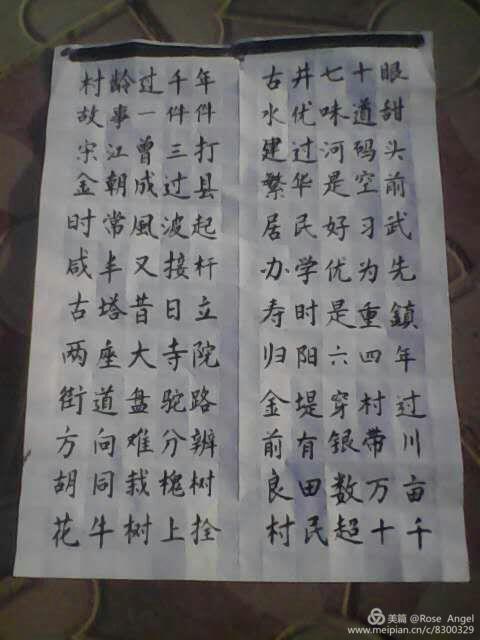 村龄过千年
故事一件件
宋江曾三打
金朝成过县
时常風波起
咸丰又接杆
古塔昔日立
两座大寺院
街道盘驼路
方向难分辨
胡同栽槐树
花牛树上拴
古井七十眼
水优味道甜
建过河码头
繁华是空前
居民好习武
办学优为先
寿时是重鎮
归阳六四年
金堤穿村过
前有银带川
良田数万亩
村民超十千
美篇 @Rose_Angel
www.meipian.cn/c/8300329